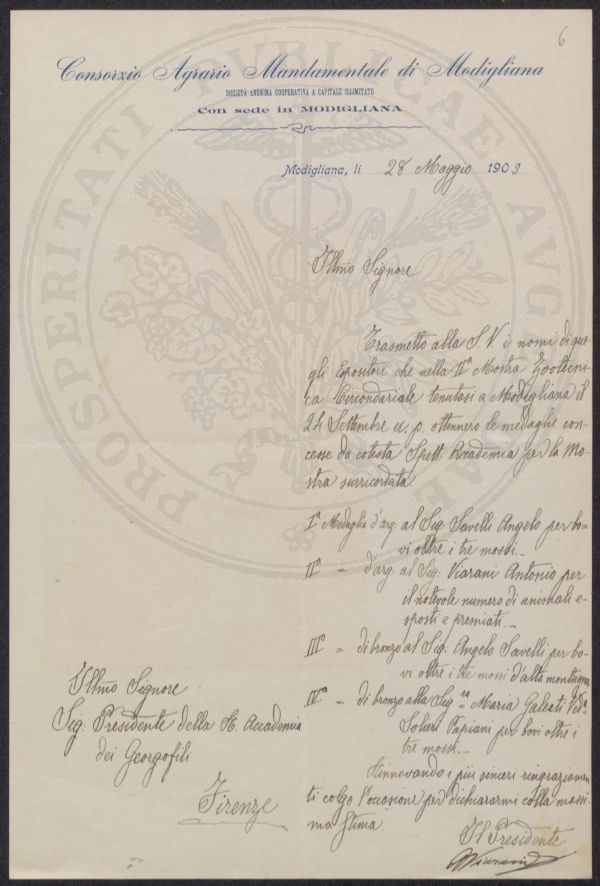 6
Consorzio Agrario Mandamentale di Modigliana
SOCIETÀ ANONIMA COOPERATIVA A CAPITALE ILLIMITATO
Con sede in MODIGLIANA
Modigliana, li 28 Maggio 1909
Illmo Signore
Trasmetto alla S. V. i nomi di que-
gli Espositori che nella IIa Mostra Zootecni-
ca Circondariale tenutasi a Modigliana il
24 Settembre a. p. ottennero le medaglie con-
cesse da cotesta Spett. Accademia per la Mo-
stra surricordata
Ia Medaglia d'arg. al Sig. Savelli Angelo per bo-
vi oltre i tre mossi. -
IIa = d'arg. al Sig. Viarani Antonio per
il notevole numero di animali e-
sposti e premiati. -
IIIa = di bronzo al Sig. Angelo Savelli per bo-
vi oltre i tre mossi d'alta montagna
IVa = di bronzo alla Sig.ra Maria Galeati Ved.a
Solieri Papiani per bovi oltre i
tre mossi. -
Rinnovando i più sinceri ringraziamen
ti colgo l'occasione per dichiararmi colla massi-
ma stima.
Il Presidente
Viarani
Illmo Signore
Sig. Presidente della R. Accademia
dei Georgofili
Firenze
PROSPERITATI PVBLICAE AVGENDAE